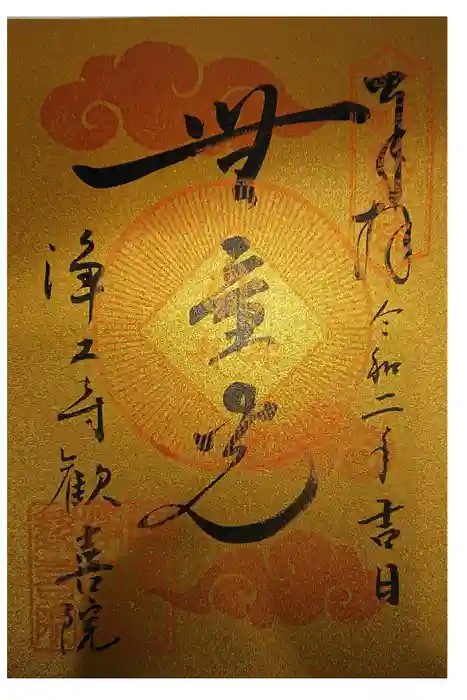 奉拝
令和二年吉日
無量光
浄土寺歓喜院